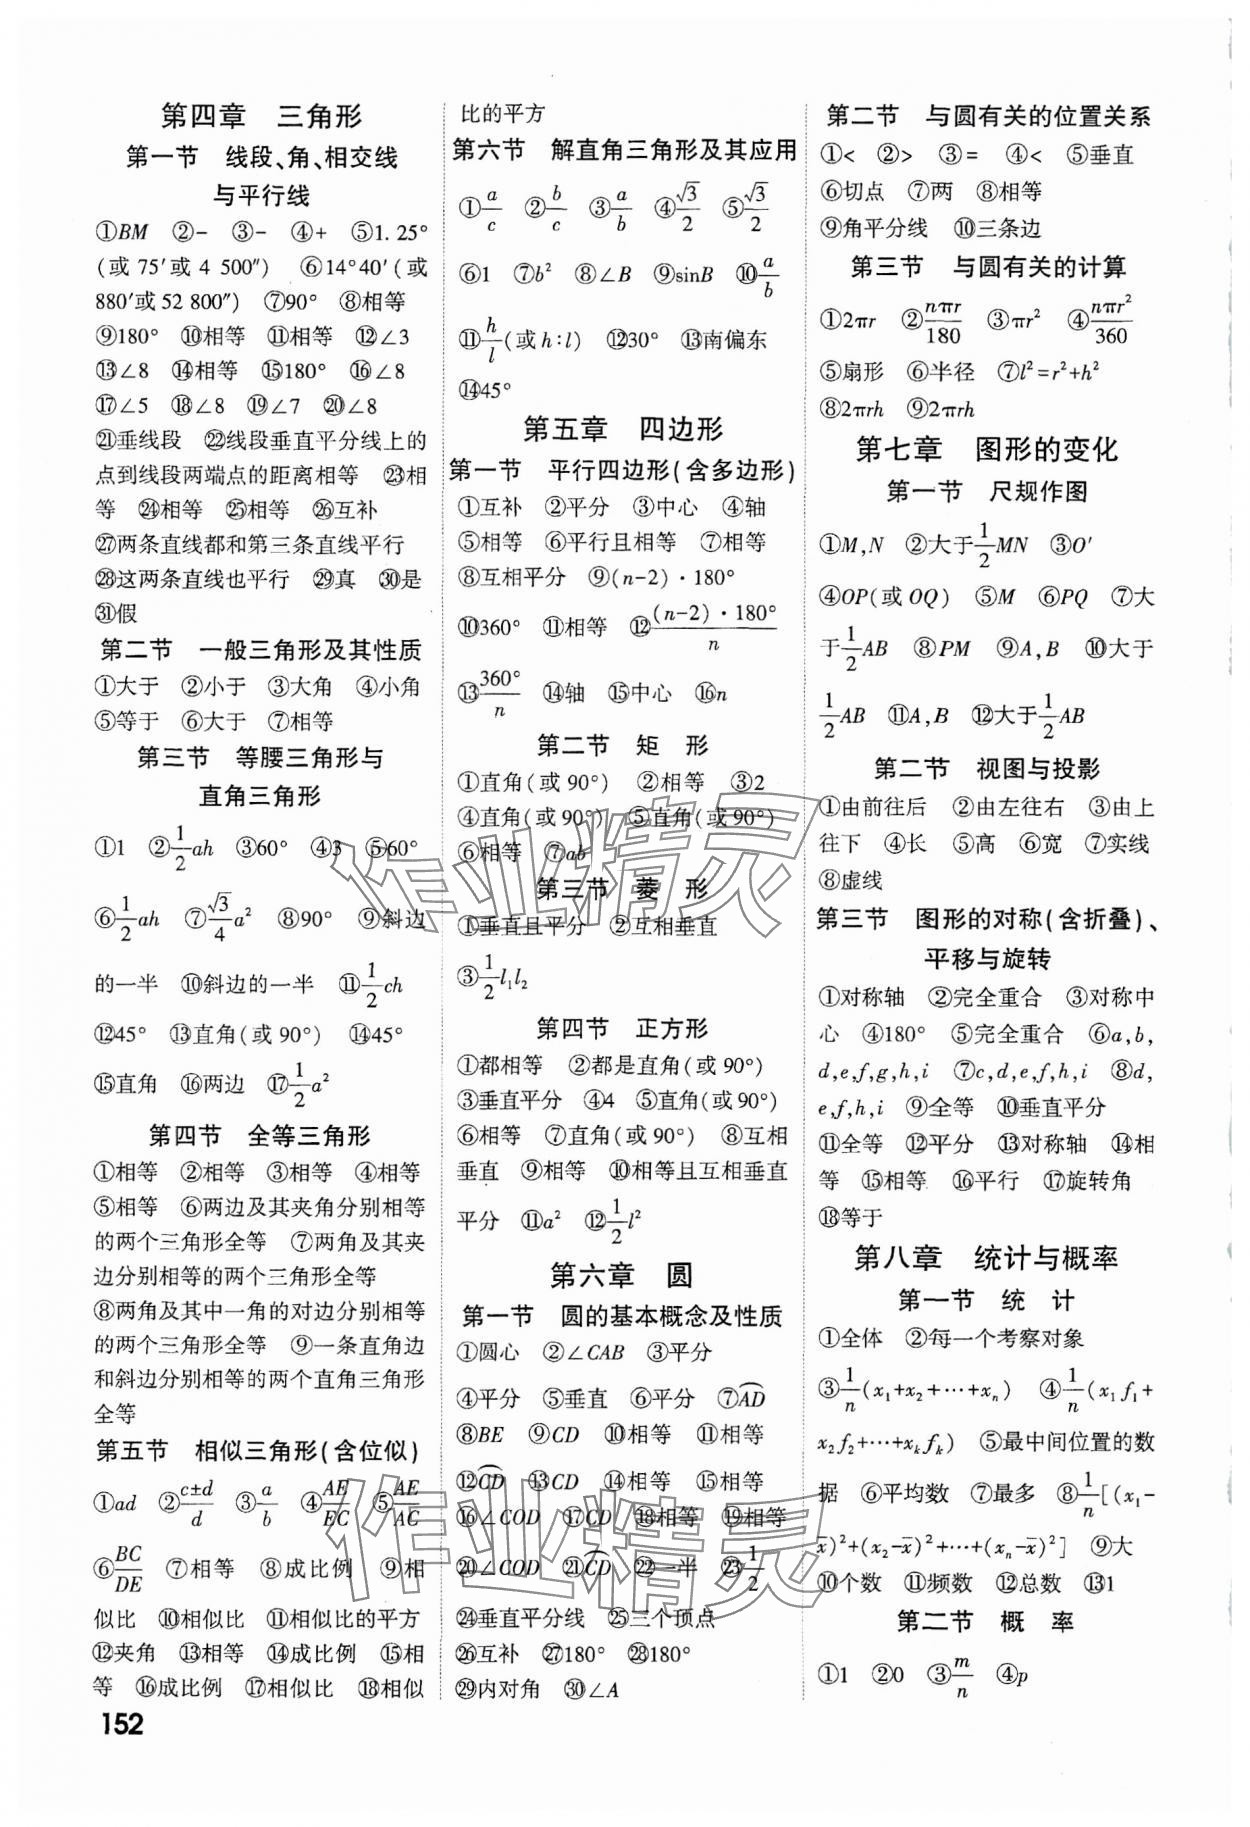 第四章　三角形
第一节　线段、角、相交线
与平行线
①BM　②-　③-　④+　⑤1.25°
(或 75′或 4 500″)　⑥14°40′(或
880′或 52 800″)　⑦90°　⑧相等
⑨180°　⑩相等　⑪相等　⑫∠3
⑬∠8　⑭相等　⑮180°　⑯∠8
⑰∠5　⑱∠8　⑲∠7　⑳∠8
㉑垂线段　㉒线段垂直平分线上的
点到线段两端点的距离相等　㉓相
等　㉔相等　㉕相等　㉖互补
㉗两条直线都和第三条直线平行
㉘这两条直线也平行　㉙真　㉚是
㉛假
第二节　一般三角形及其性质
①大于　②小于　③大角　④小角
⑤等于　⑥大于　⑦相等
第三节　等腰三角形与
直角三角形
①1　②1/2 ah　③60°　④3　⑤60°
⑥1/2 ah　⑦√3/4 a²　⑧90°　⑨斜边
的一半　⑩斜边的一半　⑪1/2 ch
⑫45°　⑬直角(或 90°)　⑭45°
⑮直角　⑯两边　⑰1/2 a²
第四节　全等三角形
①相等　②相等　③相等　④相等
⑤相等　⑥两边及其夹角分别相等
的两个三角形全等　⑦两角及其夹
边分别相等的两个三角形全等
⑧两角及其中一角的对边分别相等
的两个三角形全等　⑨一条直角边
和斜边分别相等的两个直角三角形
全等
第五节　相似三角形(含位似)
①ad　②(c±d)/d　③a/b　④AE/EC　⑤AE/AC
⑥BC/DE　⑦相等　⑧成比例　⑨相
似比　⑩相似比　⑪相似比的平方
⑫夹角　⑬相等　⑭成比例　⑮相
等　⑯成比例　⑰相似比　⑱相似
152
比的平方
第六节　解直角三角形及其应用
①a/c　②b/c　③a/b　④√3/2　⑤√3/2
⑥1　⑦b²　⑧∠B　⑨sinB　⑩a/b
⑪h/l(或 h∶l)　⑫30°　⑬南偏东
⑭45°
第五章　四边形
第一节　平行四边形(含多边形)
①互补　②平分　③中心　④轴
⑤相等　⑥平行且相等　⑦相等
⑧互相平分　⑨(n-2)·180°
⑩360°　⑪相等　⑫(n-2)·180°/n
⑬360°/n　⑭轴　⑮中心　⑯n
第二节　矩　形
①直角(或 90°)　②相等　③2
④直角(或 90°)　⑤直角(或 90°)
⑥相等　⑦ab
第三节　菱　形
①垂直且平分　②互相垂直
③1/2 l₁l₂
第四节　正方形
①都相等　②都是直角(或 90°)
③垂直平分　④4　⑤直角(或 90°)
⑥相等　⑦直角(或 90°)　⑧互相
垂直　⑨相等　⑩相等且互相垂直
平分　⑪a²　⑫1/2 l²
第六章　圆
第一节　圆的基本概念及性质
①圆心　②∠CAB　③平分
④平分　⑤垂直　⑥平分　⑦A͡D
⑧BE　⑨CD　⑩相等　⑪相等
⑫C͡D　⑬CD　⑭相等　⑮相等
⑯∠COD　⑰CD　⑱相等　⑲相等
⑳∠COD　㉑C͡D　㉒一半　㉓1/2
㉔垂直平分线　㉕三个顶点
㉖互补　㉗180°　㉘180°
㉙内对角　㉚∠A
第二节　与圆有关的位置关系
①<　②>　③=　④<　⑤垂直
⑥切点　⑦两　⑧相等
⑨角平分线　⑩三条边
第三节　与圆有关的计算
①2πr　②nπr/180　③πr²　④nπr²/360
⑤扇形　⑥半径　⑦l²=r²+h²
⑧2πrh　⑨2πrh
第七章　图形的变化
第一节　尺规作图
①M,N　②大于1/2 MN　③O′
④OP(或 OQ)　⑤M　⑥PQ　⑦大
于1/2 AB　⑧PM　⑨A,B　⑩大于
1/2 AB　⑪A,B　⑫大于1/2 AB
第二节　视图与投影
①由前往后　②由左往右　③由上
往下　④长　⑤高　⑥宽　⑦实线
⑧虚线
第三节　图形的对称(含折叠)、
平移与旋转
①对称轴　②完全重合　③对称中
心　④180°　⑤完全重合　⑥a,b,
d,e,f,g,h,i　⑦c,d,e,f,h,i　⑧d,
e,f,h,i　⑨全等　⑩垂直平分
⑪全等　⑫平分　⑬对称轴　⑭相
等　⑮相等　⑯平行　⑰旋转角
⑱等于
第八章　统计与概率
第一节　统　计
①全体　②每一个考察对象
③1/n(x₁+x₂+…+xₙ)　④1/n(x₁f₁+
x₂f₂+…+xₖfₖ)　⑤最中间位置的数
据　⑥平均数　⑦最多　⑧1/n[(x₁-
x̄)²+(x₂-x̄)²+…+(xₙ-x̄)²]　⑨大
⑩个数　⑪频数　⑫总数　⑬1
第二节　概　率
①1　②0　③m/n　④p
作业精灵
作业精灵